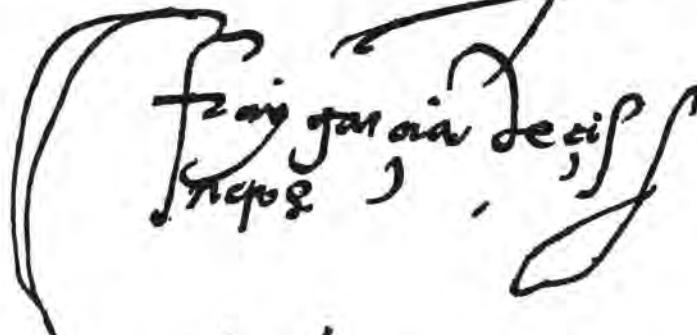 fray garcia de cis
neros